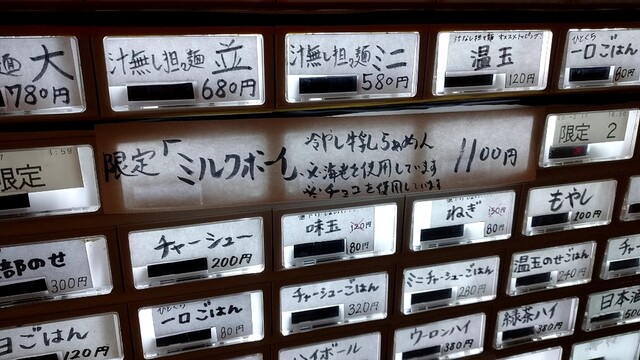 麺 大
780円
汁無し担々麺 並
680円
汁無し担々麺 ミニ
580円
汁なし担々麺 オススメトッピング
温玉
120円
ひとくち
一口ごはん
80円
限定「ミルクボーイ」
冷やし牛乳らぁめん
※海老を使用しています
※チョコを使用しています
1100円
限定
限定 2
部のせ
300円
チャーシュー
200円
味玉 120円
80円
ねぎ 150円
80円
もやし
100円
日ごはん
120円
ひとくち
一口ごはん
80円
チャーシューごはん
320円
ミニチャーシューごはん
280円
温玉のせごはん
240円
チャー
ハイボール
ウーロンハイ
380円
緑茶ハイ
380円
日本酒
500